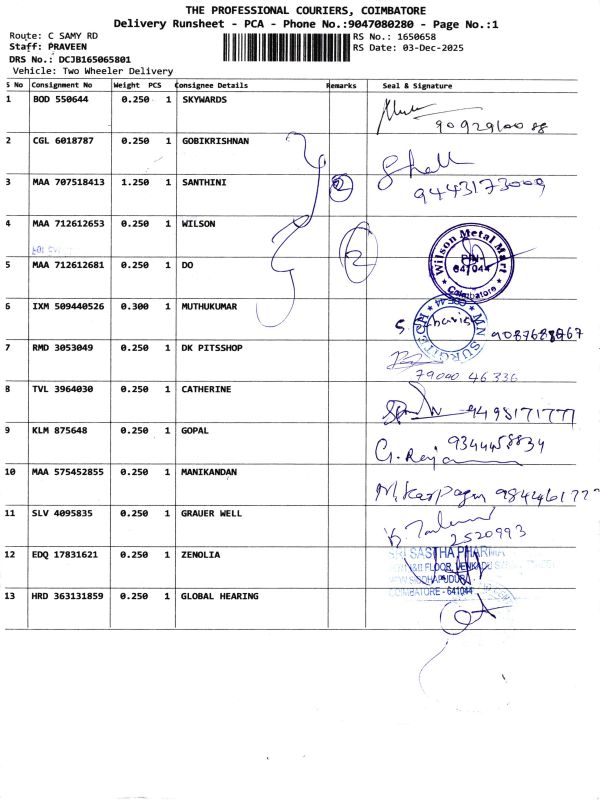 THE PROFESSIONAL COURIERS, COIMBATORE
Delivery Runsheet - PCA - Phone No.:9047080280 - Page No.:1
Route: C SAMY RD
RS No.: 1650658
Staff: PRAVEEN
RS Date: 03-Dec-2025
DRS No.: DCJB165065801
Vehicle: Two Wheeler Delivery
S No Consignment No Weight PCS Consignee Details Remarks Seal & Signature
1 BOD 550644 0.250 1 SKYWARDS
2 CGL 6018787 0.250 1 GOBIKRISHNAN
3 MAA 707518413 1.250 1 SANTHINI 2 9443173009
4 MAA 712612653 0.250 1 WILSON 2 Wilson Metal Mart
PIN-
641044
Coimbatore
5 MAA 712612681 0.250 1 DO
6 IXM 509440526 0.300 1 MUTHUKUMAR MN SURGITECH
7 RMD 3053049 0.250 1 DK PITSSHOP 79000 46336
8 TVL 3964030 0.250 1 CATHERINE 9498171777
9 KLM 875648 0.250 1 GOPAL 9344458834
10 MAA 575452855 0.250 1 MANIKANDAN
11 SLV 4095835 0.250 1 GRAUER WELL 2520993
12 EDQ 17831621 0.250 1 ZENOLIA SRI SASTHA PHARMA
FLOOR, VENKADU
COIMBATORE - 641044
13 HRD 363131859 0.250 1 GLOBAL HEARING